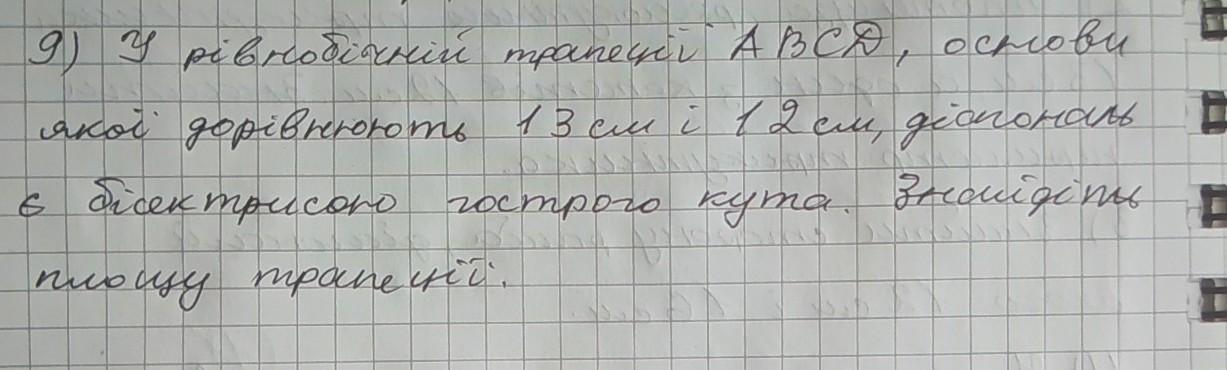 9) У рівнобічній трапеції ABCD, основи
якої дорівнюють 13 см і 12 см, діагональ
є бісектрисою гострого кута. Знайдіть
площу трапеції.